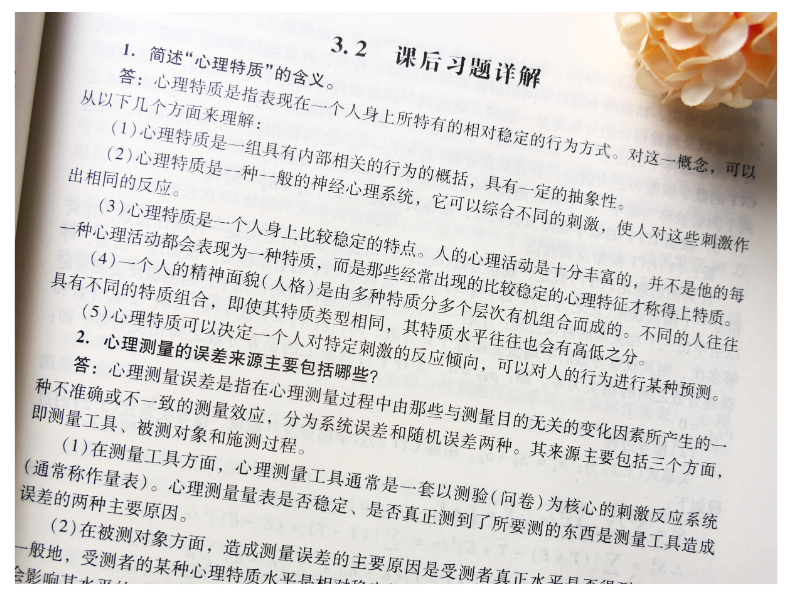 3.2 课后习题详解
1. 简述“心理特质”的含义。
答：心理特质是指表现在一个人身上所特有的相对稳定的行为方式。对这一概念，可以
从以下几个方面来理解：
(1)心理特质是一组具有内部相关的行为的概括，具有一定的抽象性。
(2)心理特质是一种一般的神经心理系统，它可以综合不同的刺激，使人对这些刺激作
出相同的反应。
(3)心理特质是一个人身上比较稳定的特点。人的心理活动是十分丰富的，并不是他的每
一种心理活动都会表现为一种特质，而是那些经常出现的比较稳定的心理特征才称得上特质。
(4)一个人的精神面貌(人格)是由多种特质分多个层次有机组合而成的。不同的人往往
具有不同的特质组合，即使其特质类型相同，其特质水平往往也会有高低之分。
(5)心理特质可以决定一个人对特定刺激的反应倾向，可以对人的行为进行某种预测。
2. 心理测量的误差来源主要包括哪些？
答：心理测量误差是指在心理测量过程中由那些与测量目的无关的变化因素所产生的一
种不准确或不一致的测量效应，分为系统误差和随机误差两种。其来源主要包括三个方面，
即测量工具、被测对象和施测过程。
(1)在测量工具方面，心理测量工具通常是一套以测验(问卷)为核心的刺激反应系统
(通常称作量表)。心理测量量表是否稳定、是否真正测到了所要测的东西是测量工具造成
误差的两种主要原因。
(2)在被测对象方面，造成测量误差的主要原因是受测者真正水平是否得到
一般地，受测者的某种心理特质水平是相对稳
会影响其水平的